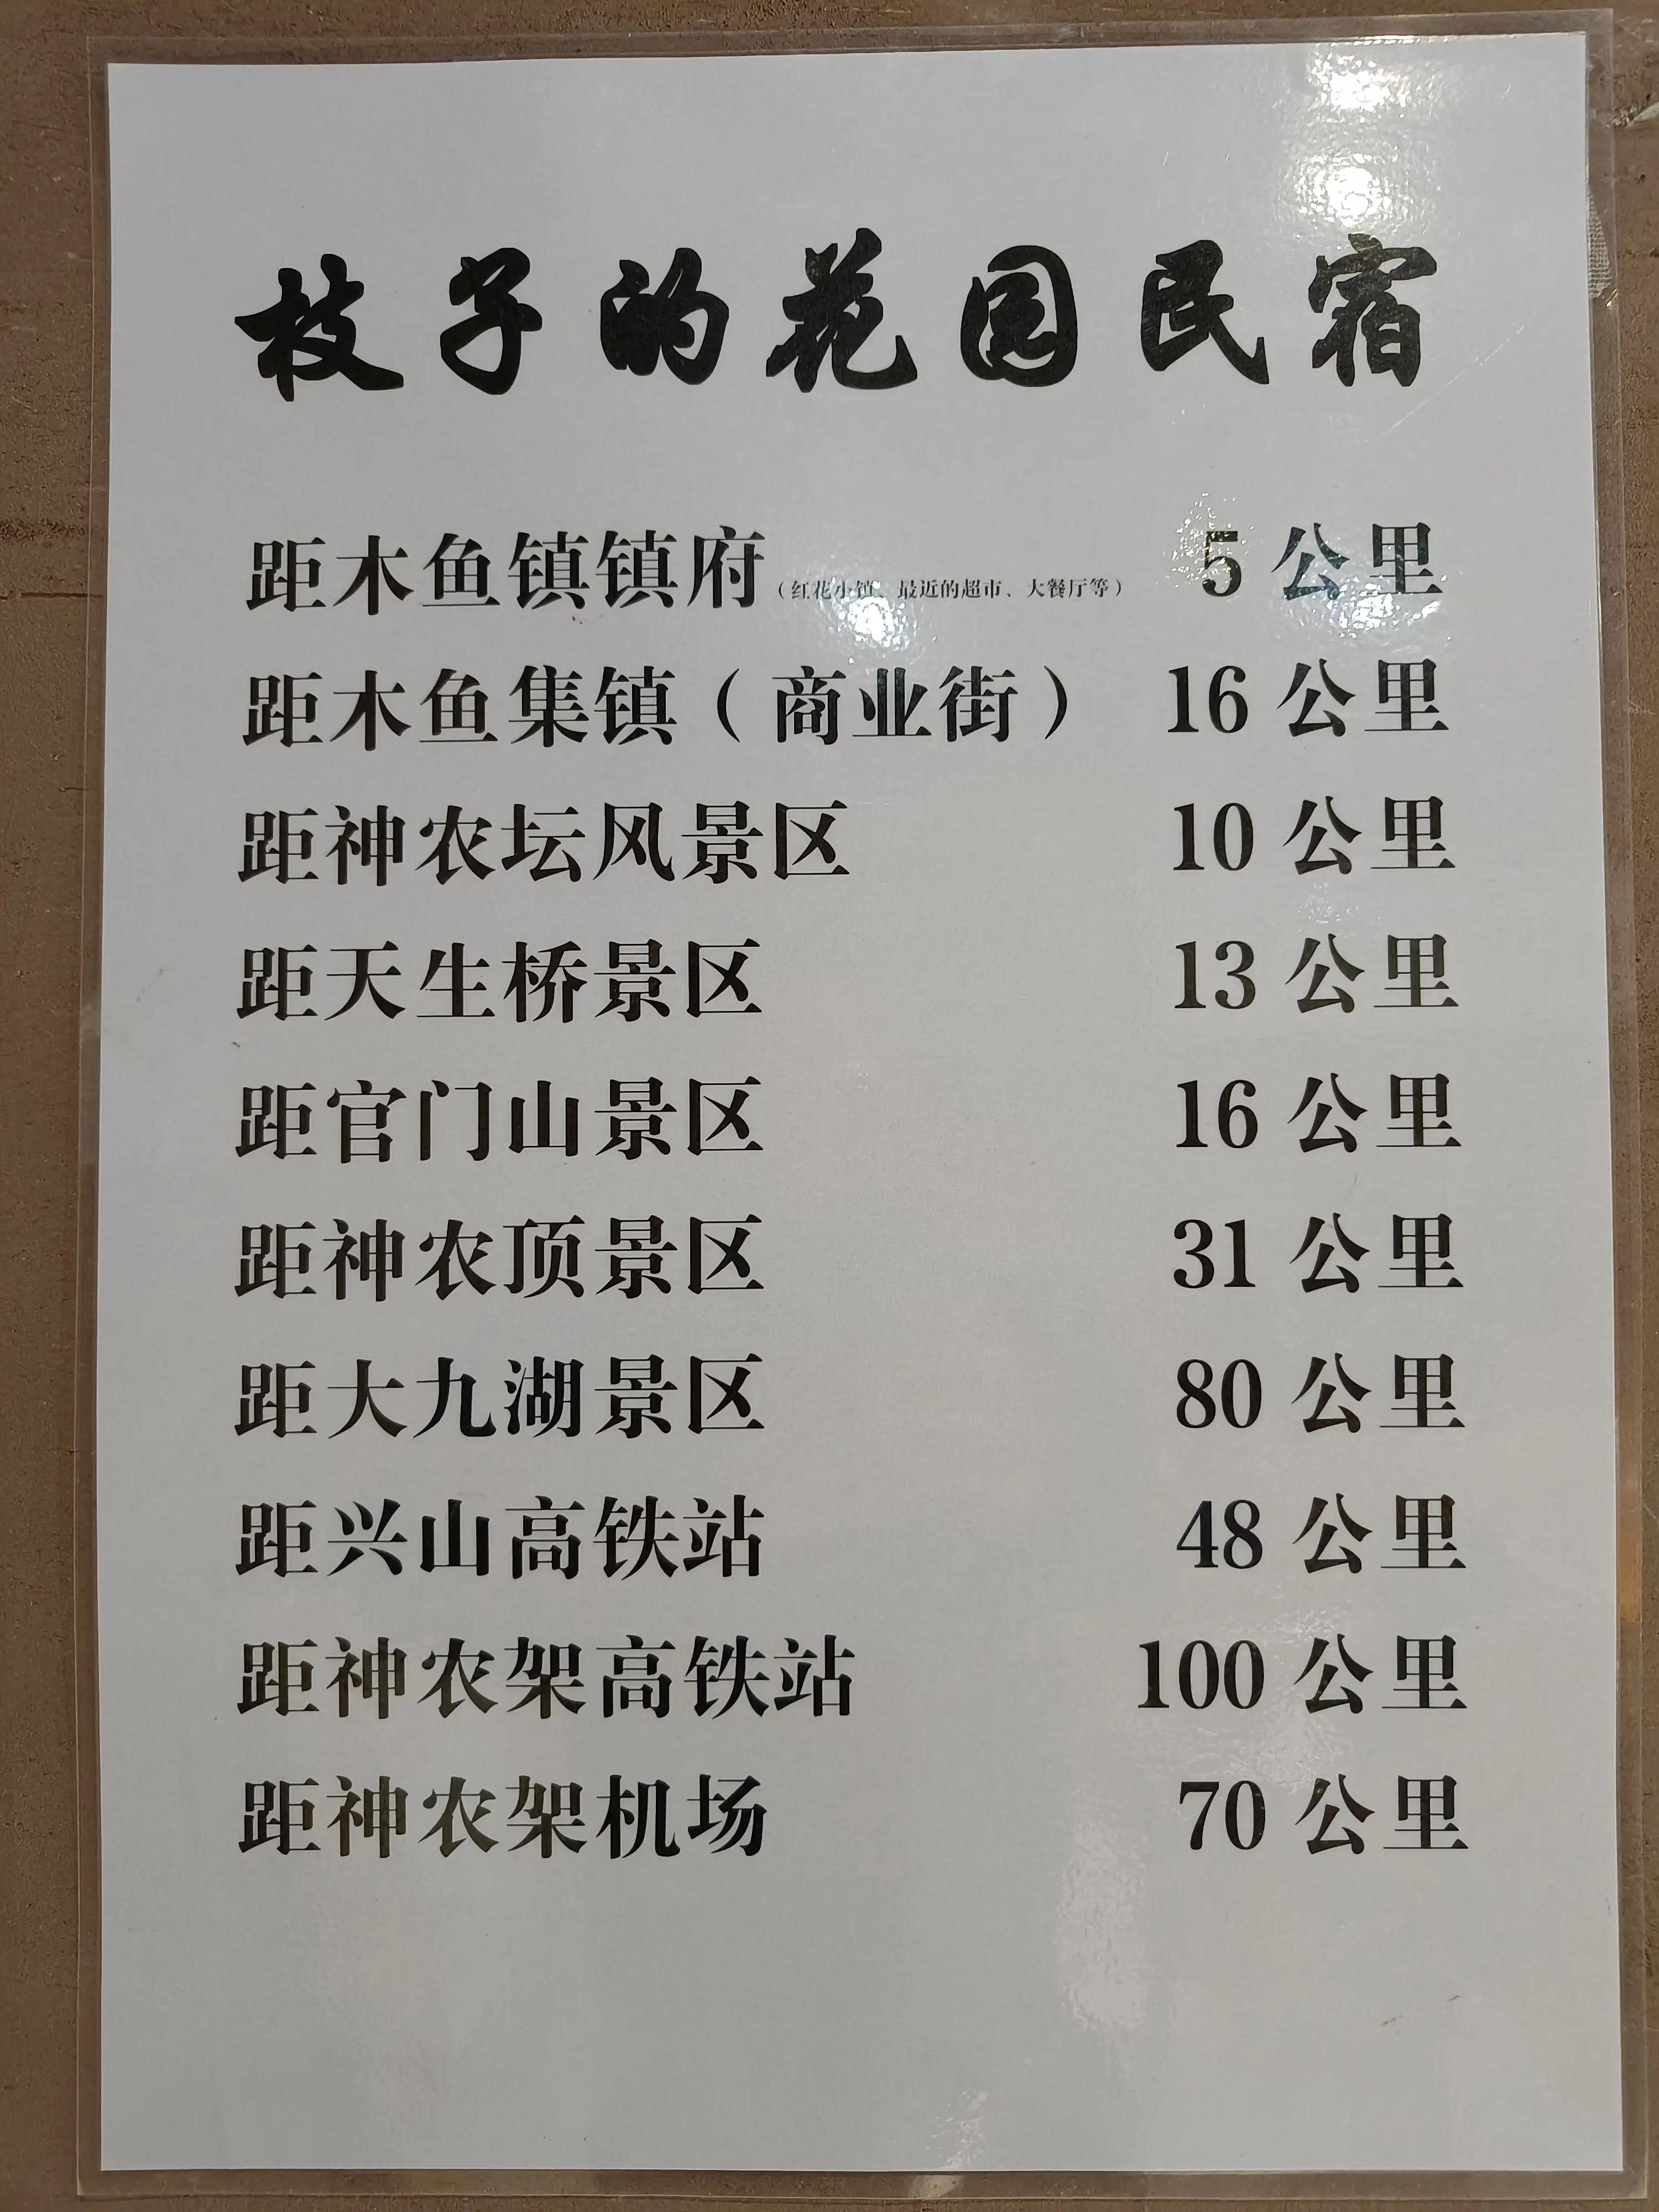 枝子的花园民宿
距木鱼镇镇府（红花小镇、最近的超市、大餐厅等） 5 公里
距木鱼集镇（商业街） 16 公里
距神农坛风景区 10 公里
距天生桥景区 13 公里
距官门山景区 16 公里
距神农顶景区 31 公里
距大九湖景区 80 公里
距兴山高铁站 48 公里
距神农架高铁站 100 公里
距神农架机场 70 公里